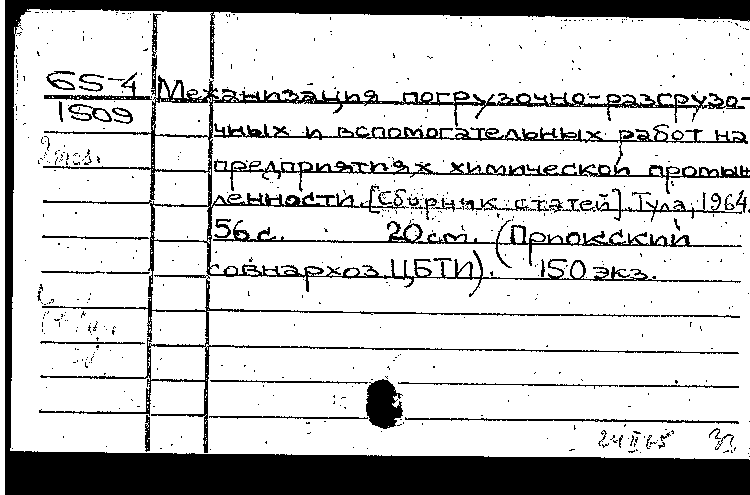 65-4
1509
Механизация погрузочно-разгрузо-
чных и вспомогательных работ на
предприятиях химической промыш
ленности. [Сборник статей]. Тула, 1964.
56 с. 20 см. (Приокский
совнархоз. ЦБТИ). 150 экз.
24 II 65